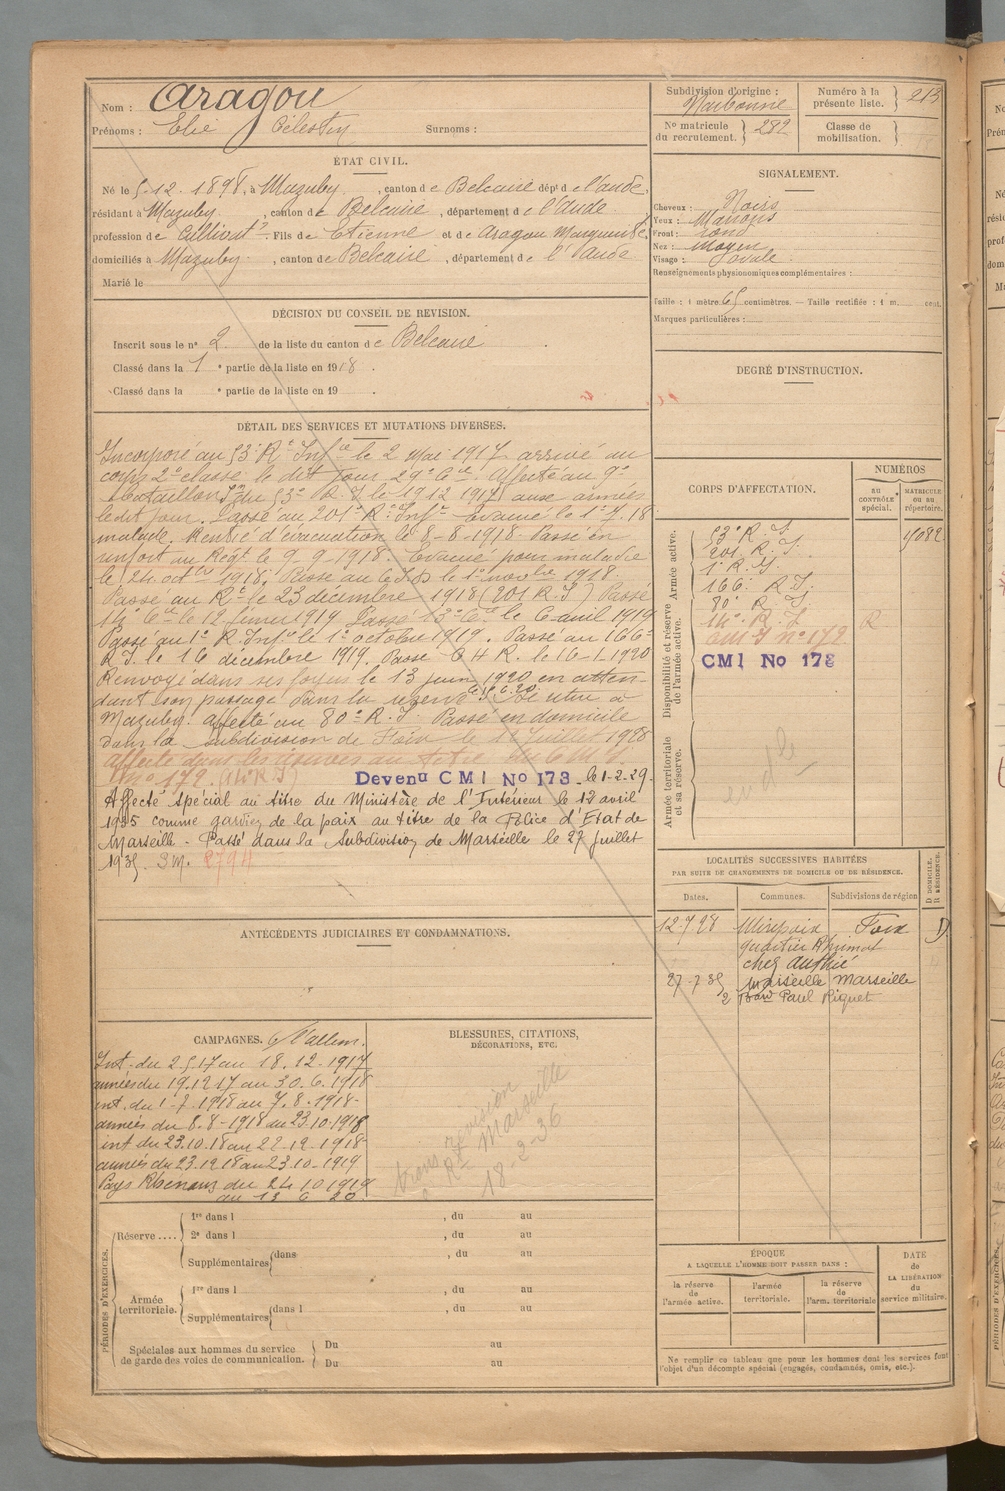 Nom : Aragou
Prénoms : Elie Célestin Surnoms :
ÉTAT CIVIL.
Né le 5.12.1898, à Mazuby, canton de Belcaire dépt de l'aude
résidant à Mazuby, canton de Belcaire, département de l'Aude
profession de Cultivatr. Fils de Etienne et de Aragou Marguerite
domiciliés à Mazuby, canton de Belcaire, département de l'aude
Marié le
DÉCISION DU CONSEIL DE REVISION.
Inscrit sous le n° 2 de la liste du canton de Belcaire
Classé dans la 1 e partie de la liste en 1918.
Classé dans la e partie de la liste en 19 .
DÉTAIL DES SERVICES ET MUTATIONS DIVERSES.
Incorporé au 53e Rt Infie le 2 Mai 1917 arrivé au
corps 2e classe le dit jour 29e Cie. Affecté au 9e
bataillon du 53e R.I. le 19 12 1917 aux armées
le dit jour. Passé au 201e Rt Infie Evacué le 1-7.18
malade. Rentré d'évacuation le 8-8-1918. Passé en
renfort au Regt le 9.9.1918 Evacué pour malade
le 24 octbre 1918. Passé au le 1er novbre 1918.
Passé au Rt le 23 décembre 1918 (201 R.I) Passé
14 Cie le 12 février 1919 Passé 13e Cie le 6 avril 1919
Passé au 1er R. Infie le 1er octobre 1919. Passé au 166e
R.I. le 16 décembre 1919. Passé C H R. le 16-1-1920
Renvoyé dans ses foyers le 13 juin 1920 en atten-
dant son passage dans la réserve le 15.6.20. Se retire à
Mazuby. Affecté au 80e R.I. Passé en domicile
dans la subdivision de Foix le 12 Juillet 1928
Affecté dans les réserves au titre du C.M.I.
no 172. (14e R.I)
Devenu CMI No 173 - le 1-2-29-
Affecté spécial au titre du Ministère de l'Intérieur le 12 avril
1935 comme gardien de la paix au titre de la Police d'Etat de
Marseille - Passé dans la Subdivision de Marseille le 27 juillet
1935. SM. 2794
ANTÉCÉDENTS JUDICIAIRES ET CONDAMNATIONS.
CAMPAGNES. C. l'allem.
Int. du 2 5 17 au 18.12.1917
armées du 19.12 17 au 30.6.1918
int. du 1-7.1918 au 7.8.1918-
armées du 8.8-1918 au 23.10.1918
int du 23.10.18 au 22.12.1918
armées du 23.12 18 au 23.10-1919
Pays Rhénans du 24 10 1919
au 13 6 20.
BLESSURES, CITATIONS,
DÉCORATIONS, ETC.
Rt Marseille
18-2-36
PÉRIODES D'EXERCICES.
Réserve....
1re dans l , du au
2e dans l , du au
Supplémentaires dans , du au
Armée territoriale.
1re dans l , du au
Supplémentaires dans l , du au
Spéciales aux hommes du service
de garde des voies de communication.
Du au
Du au
Subdivision d'origine : Narbonne
Numéro à la présente liste. 213
No matricule du recrutement. 282
Classe de mobilisation.
SIGNALEMENT.
Cheveux : Noirs
Yeux : Marrons
Front : rond
Nez : Moyen
Visage : Ovale
Renseignements physionomiques complémentaires :
Taille : 1 mètre 65 centimètres. — Taille rectifiée : 1 m. cent.
Marques particulières :
DEGRÉ D'INSTRUCTION.
CORPS D'AFFECTATION.
NUMÉROS
AU CONTRÔLE spécial.
MATRICULE ou au répertoire.
Armée active.
Disponibilité et réserve de l'armée active.
Armée territoriale et sa réserve.
53e R.I.
201. R.I.
1e R.I.
166e R.I.
80e R.I
14e R.I R
CMI no 172
CMI No 173
LOCALITÉS SUCCESSIVES HABITÉES
PAR SUITE DE CHANGEMENTS DE DOMICILE OU DE RÉSIDENCE.
D DOMICILE.
R RÉSIDENCE.
Dates. Communes. Subdivisions de région
12-7 28 Mirepoix Foix D
chez Authié
27-7-35 Marseille Marseille
2 Bard Paul Riquet
ÉPOQUE
A LAQUELLE L'HOMME DOIT PASSER DANS :
la réserve de l'armée active.
l'armée territoriale.
la réserve de l'arm. territoriale
DATE de LA LIBÉRATION du service militaire.
Ne remplir ce tableau que pour les hommes dont les services font
l'objet d'un décompte spécial (engagés, condamnés, omis, etc.).